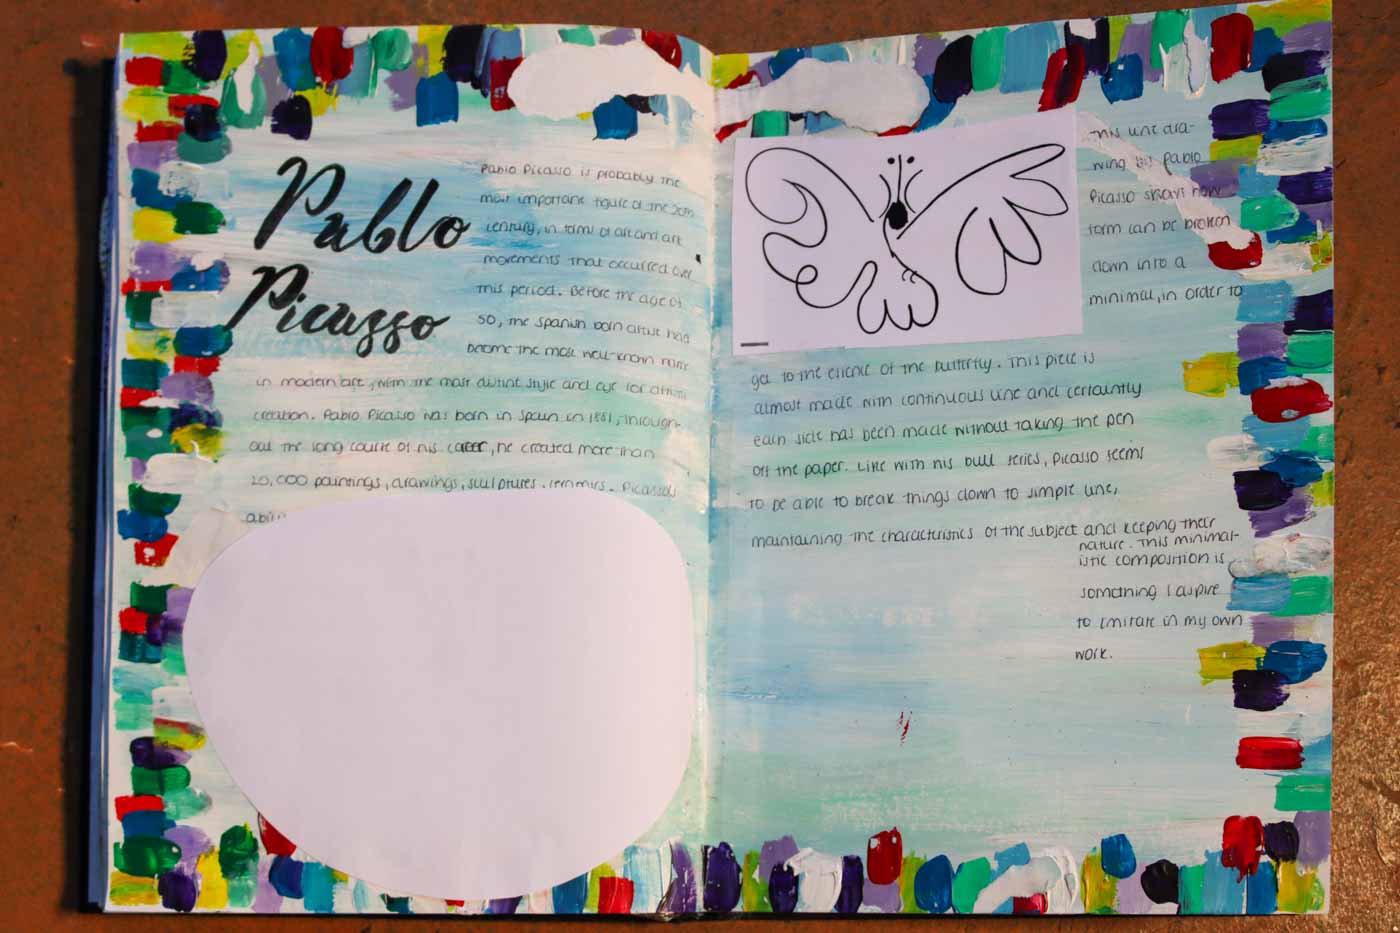 Pablo
Picasso
Pablo Picasso is probably the
most important figure of the 20th
century, in terms of art and art
movements that occurred over
this period. Before the age of
50, the Spanish born artist had
become the most well-known name
in modern art, with the most distinct style and eye for artistic
creation. Pablo Picasso was born in Spain in 1881, through-
out the long course of his career, he created more than
20,000 paintings, drawings, sculptures, Picasso's
This line dra-
wing by pablo
Picasso shows how
form can be broken
down into a
minimal, in order to
get to the essence of the butterfly. This piece is
almost made with continuous line and certaintly
each side has been made without taking the pen
off the paper. Like with his bull series, Picasso seems
to be able to break things down to simple line,
maintaining the characteristics of the subject and keeping their
nature. This minimal-
istic composition is
something I aspire
to imitate in my own
work.